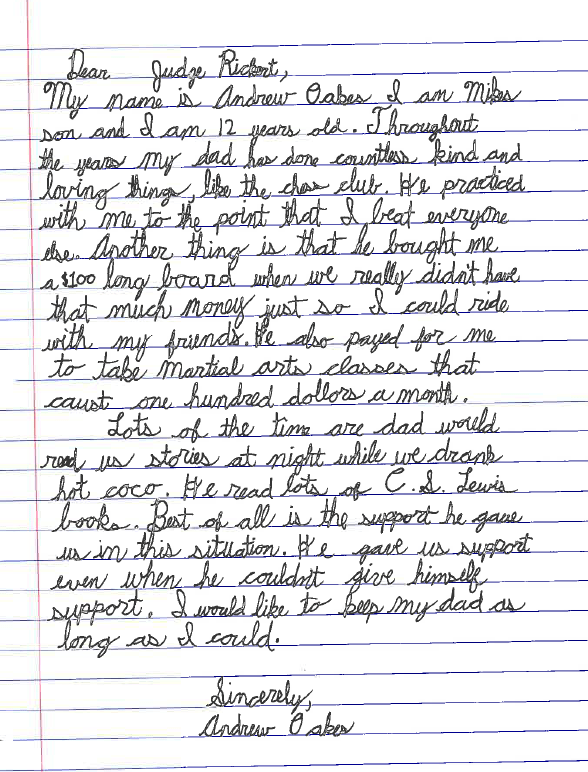 Dear Judge Rickert,
My name is Andrew Oakes I am Mikes
son and I am 12 years old. Throughout
the years my dad has done countless kind and
loving things, like the chess club. He practiced
with me to the point that I beat everyone
else. Another thing is that he bought me
a $100 long board when we really didn't have
that much money just so I could ride
with my friends. He also payed for me
to take martial arts classes that
caust one hundred dollors a month.
Lots of the time are dad would
read us stories at night while we drank
hot coco. He read lots of C.S. Lewis
books. Best of all is the support he gave
us in this situation. He gave us support
even when he couldn't give himself
support. I would like to keep my dad as
long as I could.
Sincerely,
Andrew Oakes